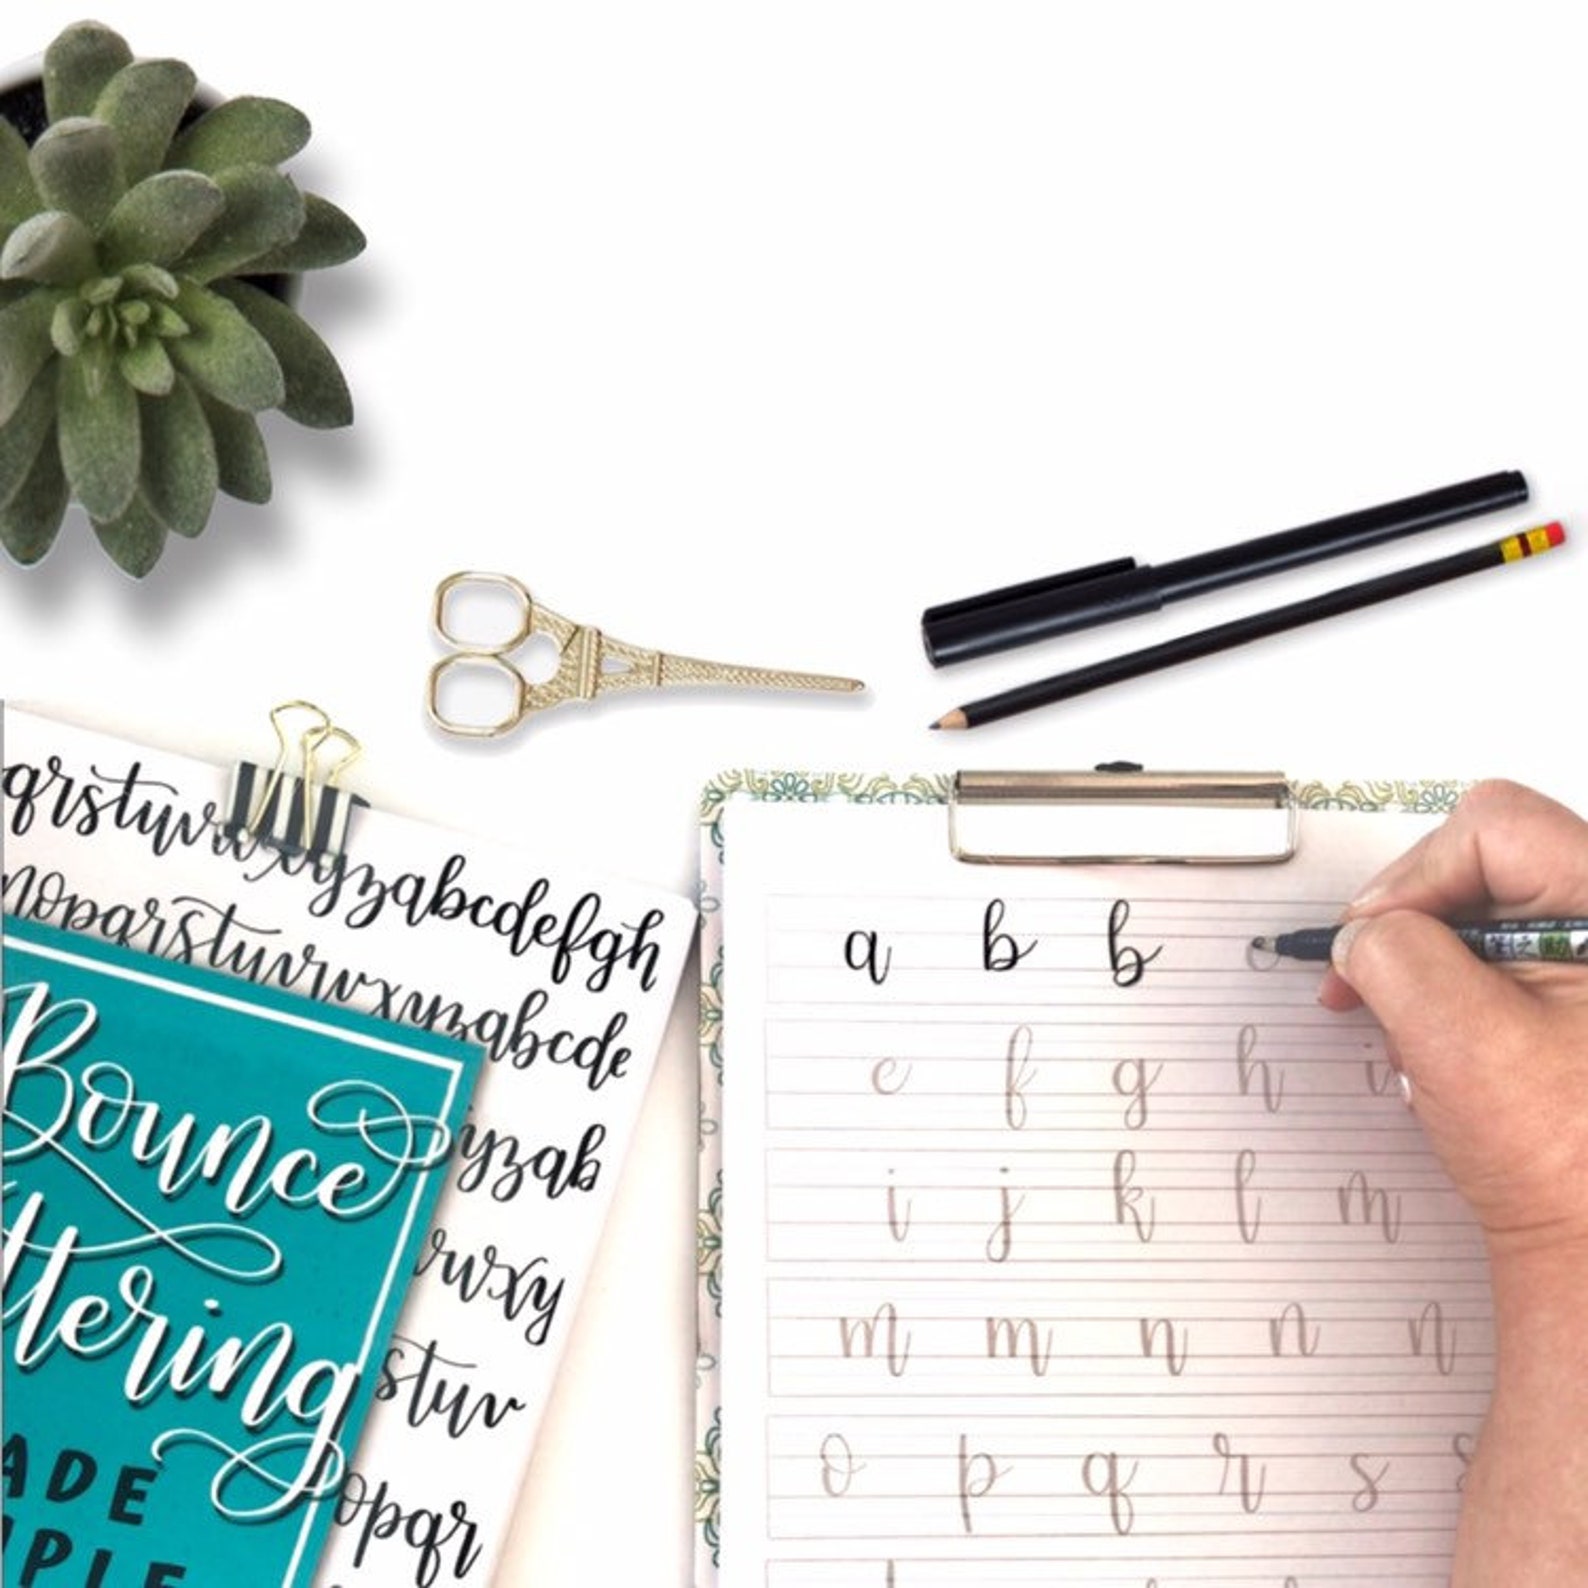 qrstuvwxyzabcdefgh
nopqrstuvwxyzabcde
yzab
vwxy
stuv
opqr
Bounce
ttering
ADE
MPLE
a b b
e f g h i
i j k l m
m m n n n
o p q r s